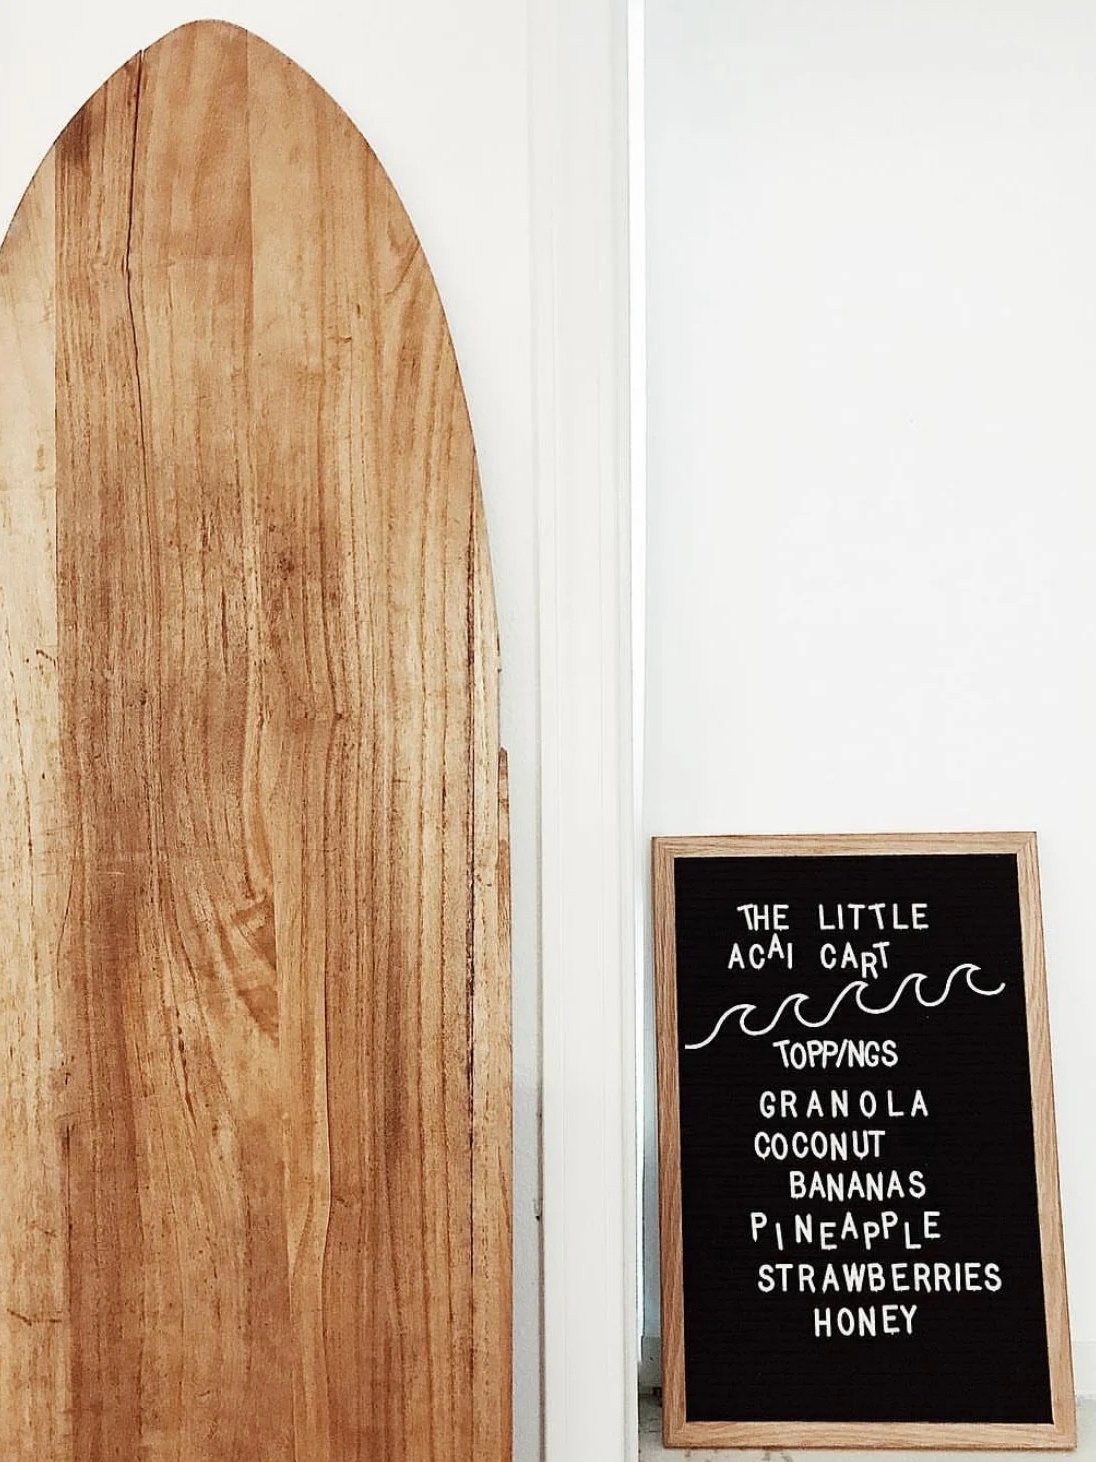 THE LITTLE
ACAI CART
TOPPINGS
GRANOLA
COCONUT
BANANAS
PINEAPPLE
STRAWBERRIES
HONEY